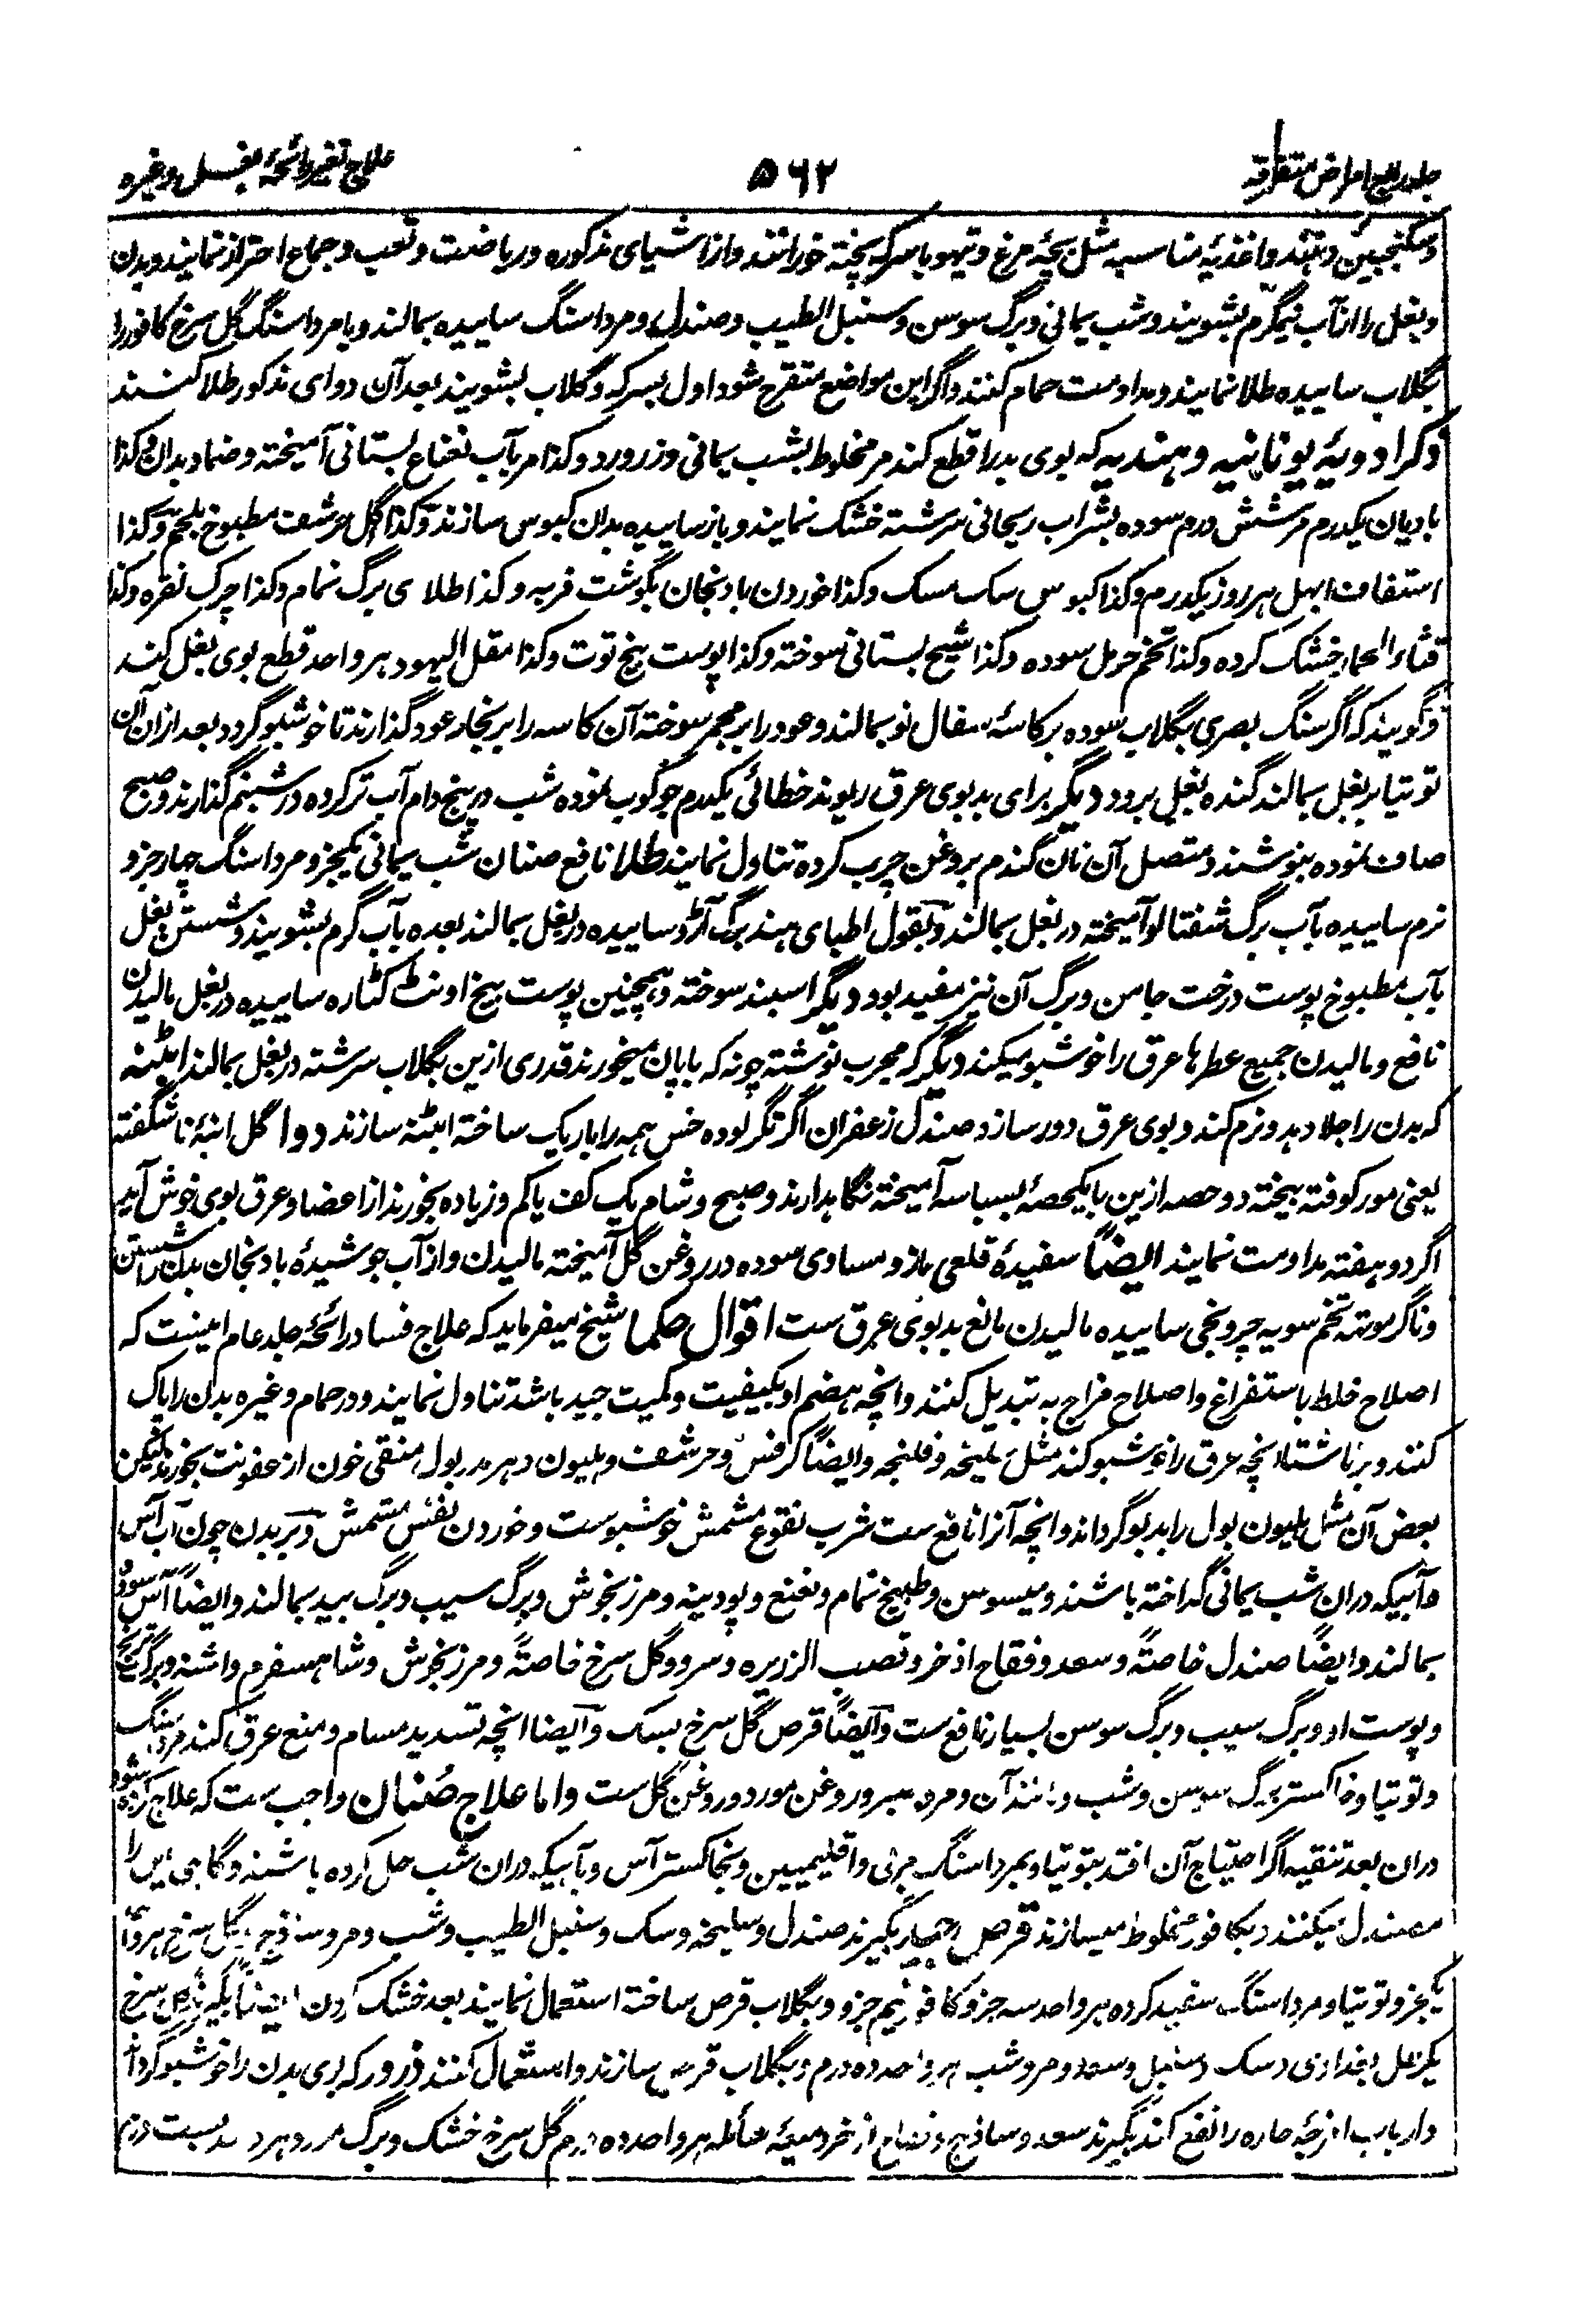 جلد رابع امراض متفرقه
۵۶۲
علاج تغیر رائحهٔ بغسل وغیره
وسکنجبین دهند واغذیهٔ مناسبه مثل بچهٔ مرغ وتیهو با سرکه پخته خورانند واز اشیای مذکوره وریاضت وتعب وجماع احتراز نمایند وبدن
وبغل را از آب نیمگرم بشویند وشب یمانی وبرگ سوسن وسنبل الطیب وصندل ومرداسنگ ساییده بمالند ویا مرداسنگ گل سرخ کافور را
بگلاب ساییده طلا نمایند ومداومت حمام کنند واگر این مواضع متقرح شود اول بسرکه وگلاب بشویند بعد آن دوای مذکور طلا کنند
ذکر ادویهٔ یونانیه وهندیه که بوی بد را قطع کند مر مخلوط بشب یمانی وزرورد وکذا مر بآب نعناع بستانی آمیخته وضماد بدان وکذا
بادیان یکدرم مر شش درم سوده بشراب ریحانی سرشته خشک نمایند وباز ساییده بدان کبوس سازند وکذا اکل حرشف مطبوخ بلحم وکذا
استفاف ابهل هر روز یکدرم وکذا کبوس سک مسک وکذا خوردن بادنجان بگوشت فربه وکذا طلای برگ نمام وکذا چرک نقره وکذا
قثاء الحمار خشک کرده وکذا تخم حرمل سوده وکذا شیح بستانی سوخته وکذا پوست بیخ توت وکذا مقل الیهود هر واحد قطع بوی بغل کند
وگویند که اگر سنگ بصری بگلاب سوده بر کاسهٔ سفال نو بمالند وعود را بر مجمر سوخته آن کاسه را بر بخار عود گذارند تا خوشبو گردد بعد ازان آن
توتیا بر بغل بمالند گنده بغل برود دیگر برای بدبوی عرق ریوند خطائی یکدرم جوکوب نموده شب در پنج دام آب تر کرده در شبنم گذارند وصبح
صاف نموده بنوشند ومتصل آن نان گندم بروغن چرب کرده تناول نمایند طلا نافع صنان شب یمانی یکجزو مرداسنگ چهار جزو
نرم ساییده بآب برگ شفتالو آمیخته در بغل بمالند وبقول اطبای هند برگ آڑو ساییده در بغل بمالند بعده بآب گرم بشویند وشستن بغل
بآب مطبوخ پوست درخت جامن وبرگ آن نیز مفید بود دیگر اسبند سوخته وهمچنین پوست بیخ اونٹ کٹاره ساییده در بغل مالیدن
نافع ومالیدن جمیع عطرها عرق را خوشبو میکند دیگر که مجرب نوشته چونه که با پان میخورند قدری ازین بگلاب سرشته در بغل بمالند ابٹنه
که بدن را جلا دهد ونرم کند وبوی عرق دور سازد صندل زعفران اگر تگر لوده خس همه را باریک ساخته ابٹنه سازند دوا گل انبهٔ ناشگفته
یعنی مور کوفته بیخته دو حصه ازین با یکحصهٔ بسباسه آمیخته نگاهدارند وصبح وشام یک کف یا کم وزیاده بخورند از اعضا وعرق بوی خوش آید
اگر دو هفته مداومت نمایند ایضاً سفیدهٔ قلعی مازو مساوی سوده در روغن گل آمیخته مالیدن واز آب جوشیدهٔ بادنجان بدن را شستن
وناگرموتهه تخم سویه چرونجی ساییده مالیدن مانع بدبوی عرق ست اقوال حکما شیخ میفرماید که علاج فساد رائحهٔ جلد عام اینست که
اصلاح خلط باستفراغ واصلاح مزاج به تبدیل کنند وانچه هضم او بکیفیت وکمیت جید باشد تناول نمایند ودر حمام وغیره بدن را پاک
کنند وبر ناشتا انچه عرق را خوشبو کند مثل سلیخه وفلنجه وایضاً کرفس وحرشف وهلیون وهر مدر بول منقی خون از عفونت بخورند لیکن
بعض آن مثل هلیون بول را بدبو گرداند وانچه آنرا نافع ست شرب نقوع مشمش خوشبوست وخوردن نفس مشمش وبر بدن چون آب آس
وآبیکه دران شب یمانی گداخته باشند ومیسوسن وطبیخ نمام ونعنع وپودینه ومرزنجوش وبرگ سیب وبرگ بید بمالند وایضاً آس سوده
بمالند وایضاً صندل خاصتهً وسعد وفقاح اذخر وقصب الزریره وسرو وگل سرخ خاصتهً ومرزنجوش وشاهسفرم واشنه وبرگ ترنج
وپوست او وبرگ سیب وبرگ سوسن بسیار نافع ست وایضاً قرص گل سرخ بسک وایضاً انچه تسدید مسام ومنع عرق کند مرداسنگ
وتوتیا وخاکستر برگ سوسن وشب ومانند آن ومر وصبر وروغن مورد وروغن گل ست واما علاج صُنان واجب ست که علاج کرده شود
دران بعد تنقیه اگر احتیاج آن افتد بتوتیا وبمرداسنگ مربی واقلیمیین وبخاکستر آس وبآبیکه دران شب حل کرده باشند وگاهی این را
مصندل میکنند وبکافور مخلوط میسازند قرص بگیرند صندل وسلیخه وسک وسنبل الطیب وشب ومر وساذج وگل سرخ هر واحد
یکجزو توتیا ومرداسنگ سفید کرده هر واحد سه جزو کافور نیم جزو وبگلاب قرص ساخته استعمال نمایند بعد خشک کردن ایضاً بگیرند گل سرخ
یکرطل بغدادی وسک وسنبل وسعد ومر وشب هر واحد ده درم وبگلاب قرص سازند واستعمال کنند ذرور که بوی بدن را خوشبو گرداند
وارباب امزجهٔ حاره را نفع کند بگیرند سعد وساذج وفقاح اذخر ومیعهٔ سائله هر واحد ده درم گل سرخ خشک وبرگ مورد هر واحد بست درم